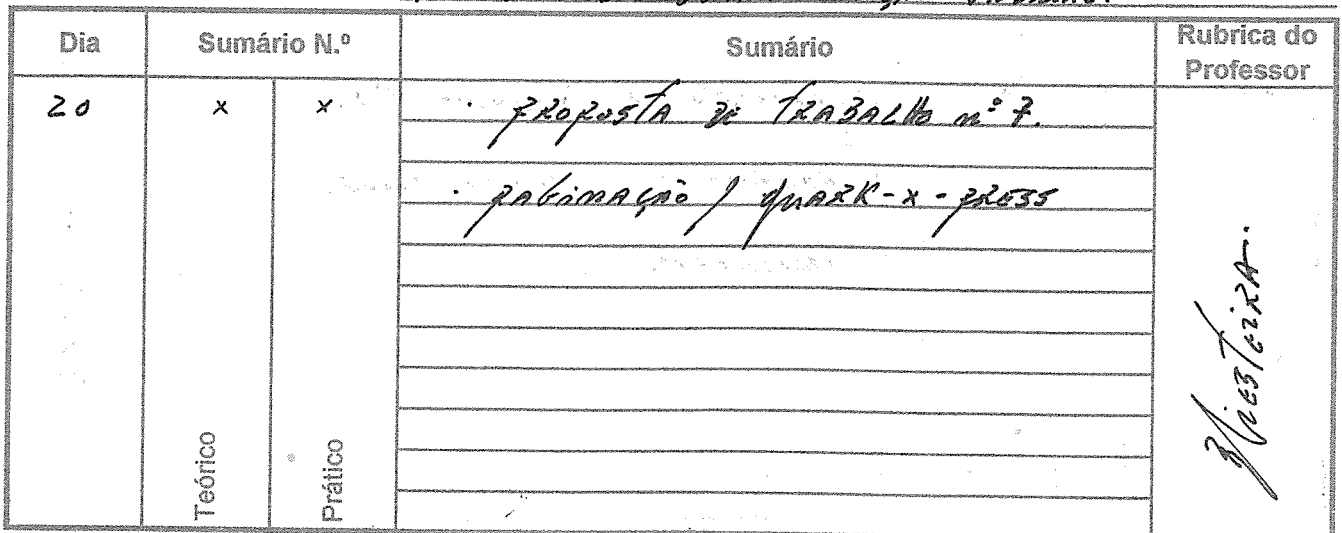 Dia Sumário N.º Sumário Rubrica do Professor
20 x x · PROPOSTA DE TRABALHO nº 7.
· PAGINAÇÃO / QUARK-X-PRESS
Teórico Prático